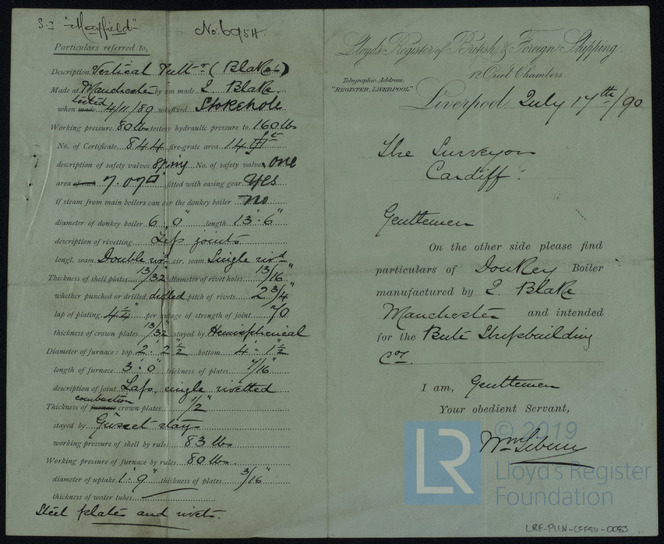 S.S "Mayfield"
No. 6954.
Particulars referred to,
Description Vertical Multr (Blakes)
Made at Manchester by whom made E Blake
when made tested 4/11/89 where fixed Stokehole
Working pressure 80 lbs tested by hydraulic pressure to 160 lbs
No. of Certificate 844 fire-grate area 14
description of safety valves Spring No. of safety valves one
area of each 7.07 fitted with easing gear Yes
if steam from main boilers can enter the donkey boiler no
diameter of donkey boiler 6' 0" length 13' 6"
description of rivetting Lap joints
longl. seam Double riv cir. seam Single riv'd
Thickness of shell plates 13/32" diameter of rivet holes 13/16"
whether punched or drilled drilled pitch of rivets 2 3/4"
lap of plating 4 1/2" per centage of strength of joint 70
thickness of crown plates 13/32" stayed by Hemispherical
Diameter of furnace: top 2' 2 1/2" bottom 4' 1 1/2"
length of furnace 3' 0" thickness of plates 7/16"
description of joint Lap, single rivetted
Thickness of furnace combustion crown plates 1/2
stayed by Gusset stays
working pressure of shell by rules 83 lbs
Working pressure of furnace by rules 80 lbs
diameter of uptake 1' 9" thickness of plates 3/16"
thickness of water tubes
Steel plates and rivets.
Lloyd's Register of British & Foreign Shipping.
12 Oriel Chambers
Telegraphic Address:
"REGISTER, LIVERPOOL"
Liverpool July 17th/90
The Surveyor
Cardiff.
Gentlemen
On the other side please find
particulars of Donkey Boiler
manufactured by E. Blake
Manchester and intended
for the Bute Shipbuilding
Coy.
I am, Gentlemen
Your obedient Servant,
Wm
© 2019
LR
Lloyd's Register
Foundation